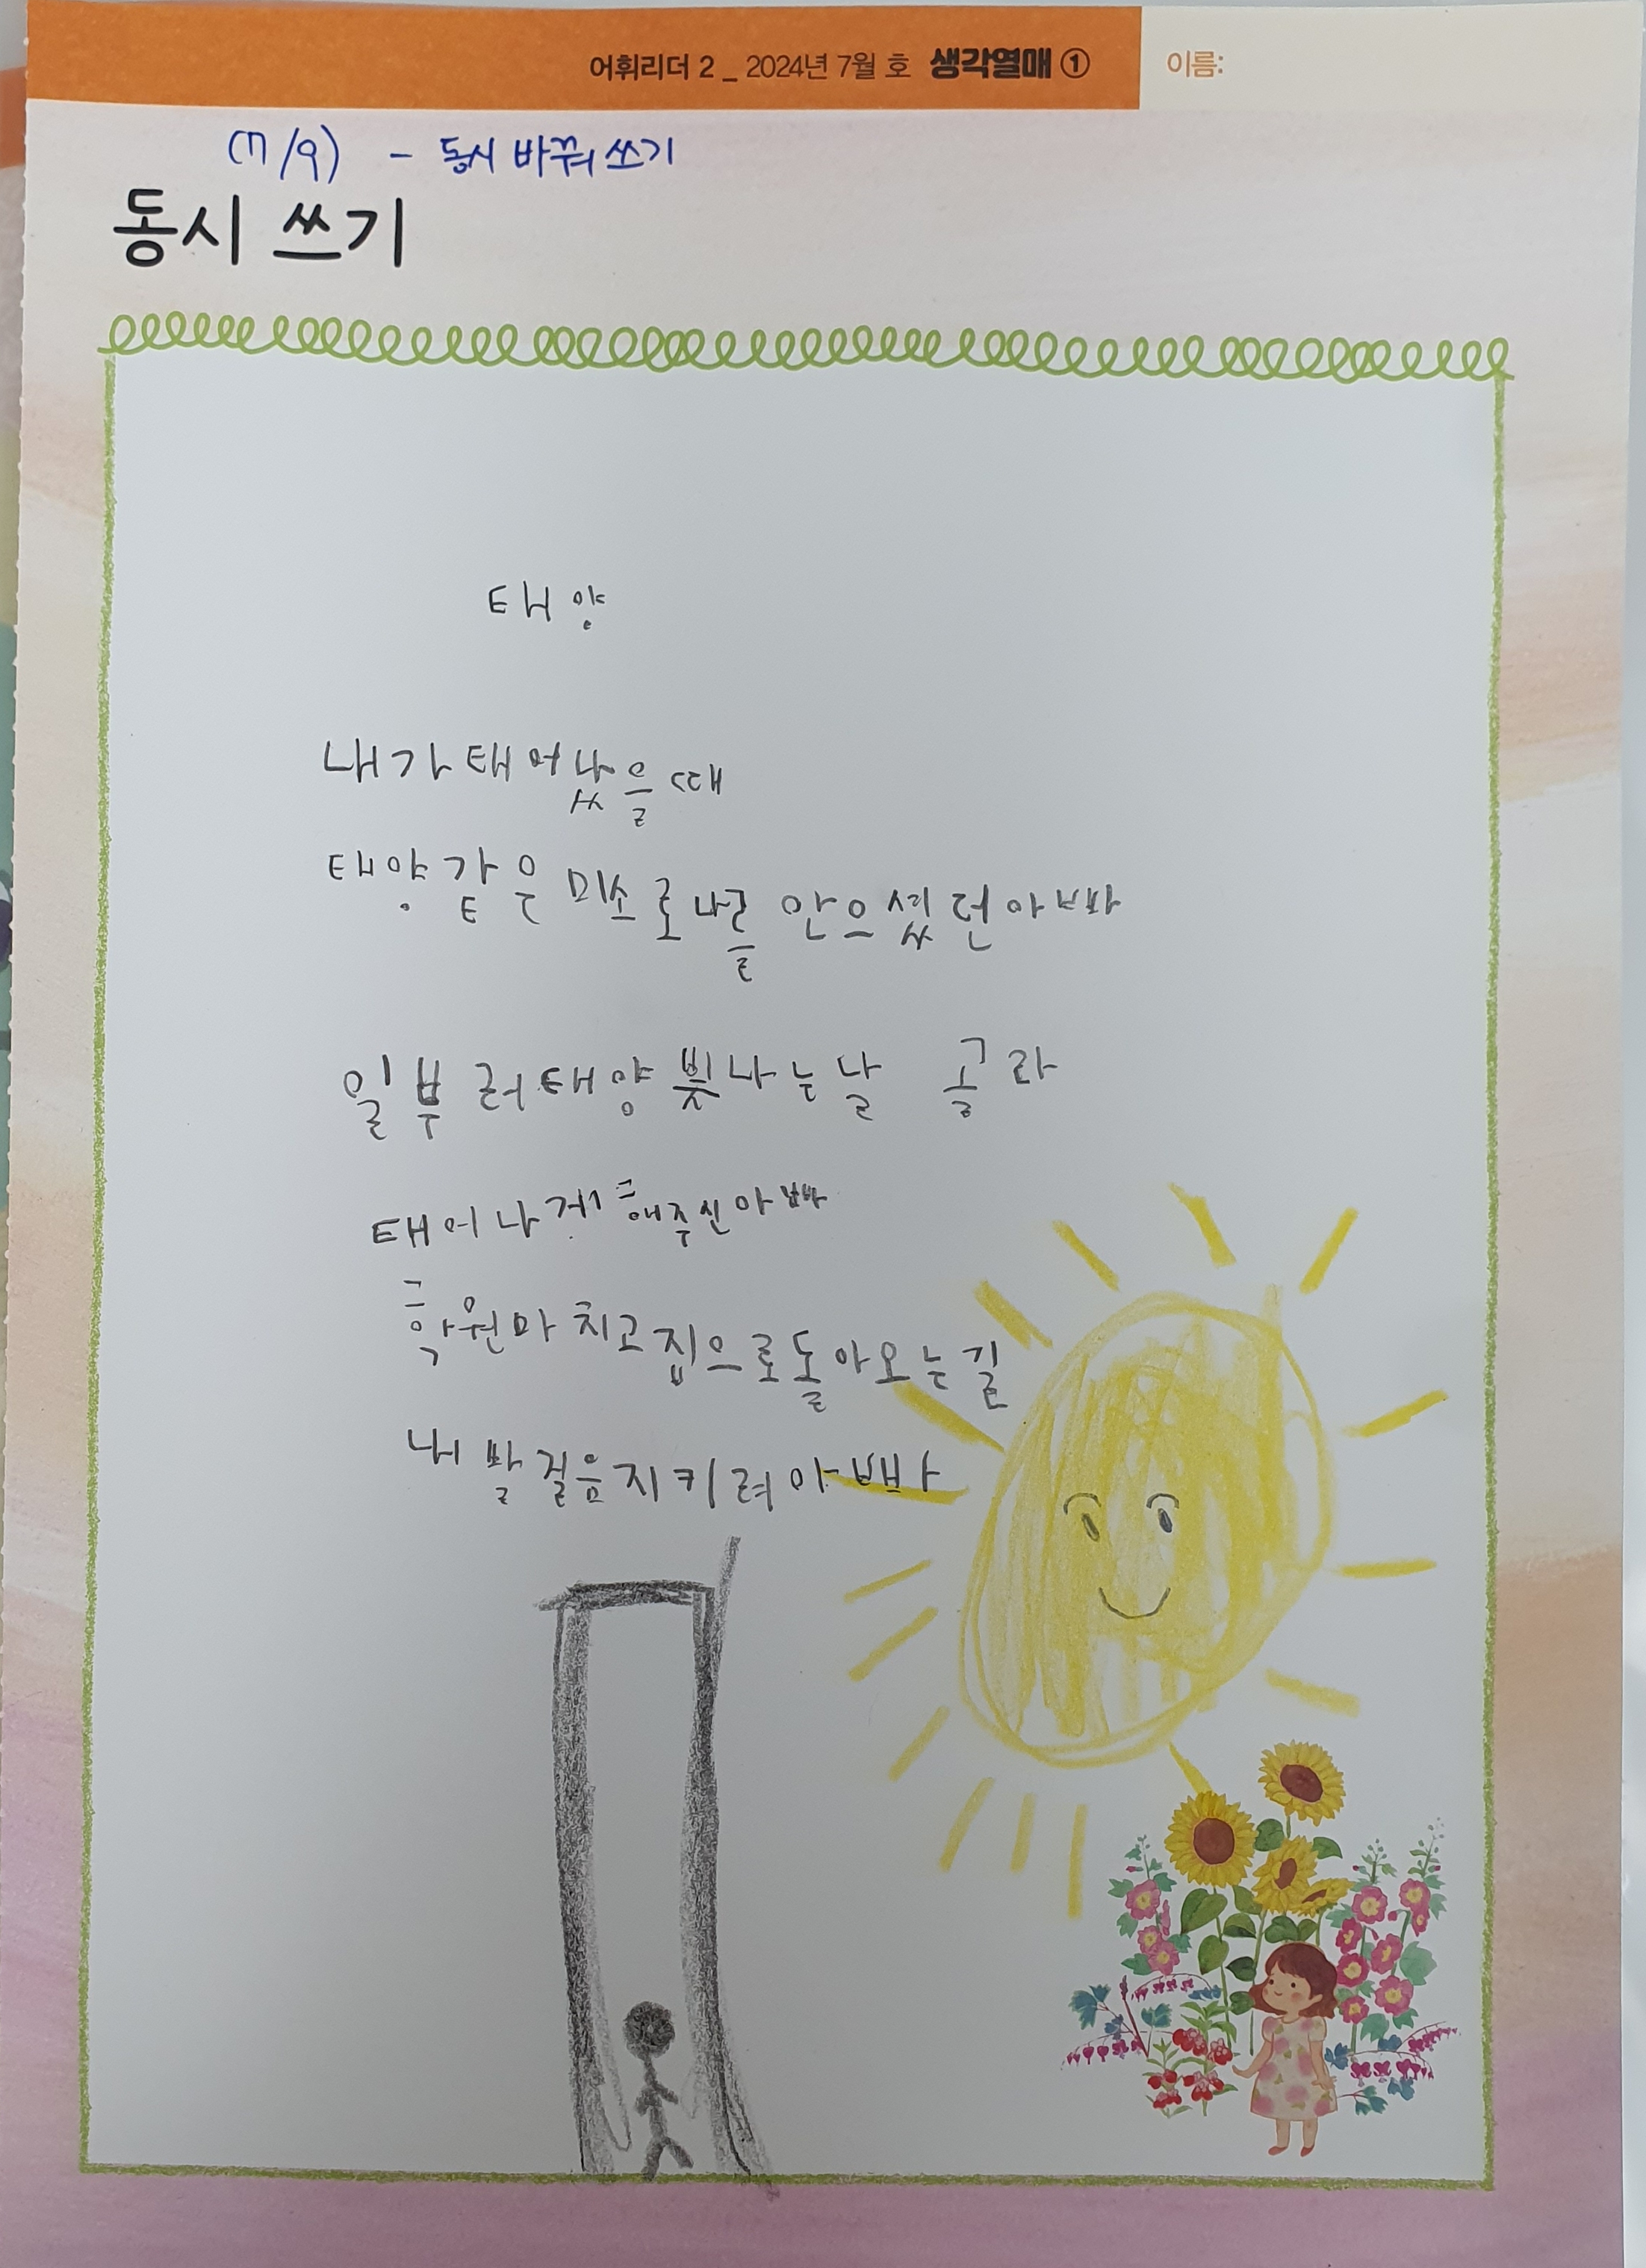 어휘리더 2 _ 2024년 7월 호 생각열매 ①
이름:
(7/9) - 동시 바꿔 쓰기
동시 쓰기
태양
내가태어났을때
태양같은 미소로나를 안으셨던아빠
일부러태양빛나는날 골라
태어나게해주신아빠
학원마치고집으로돌아오는길
내발걸음지키려아빠